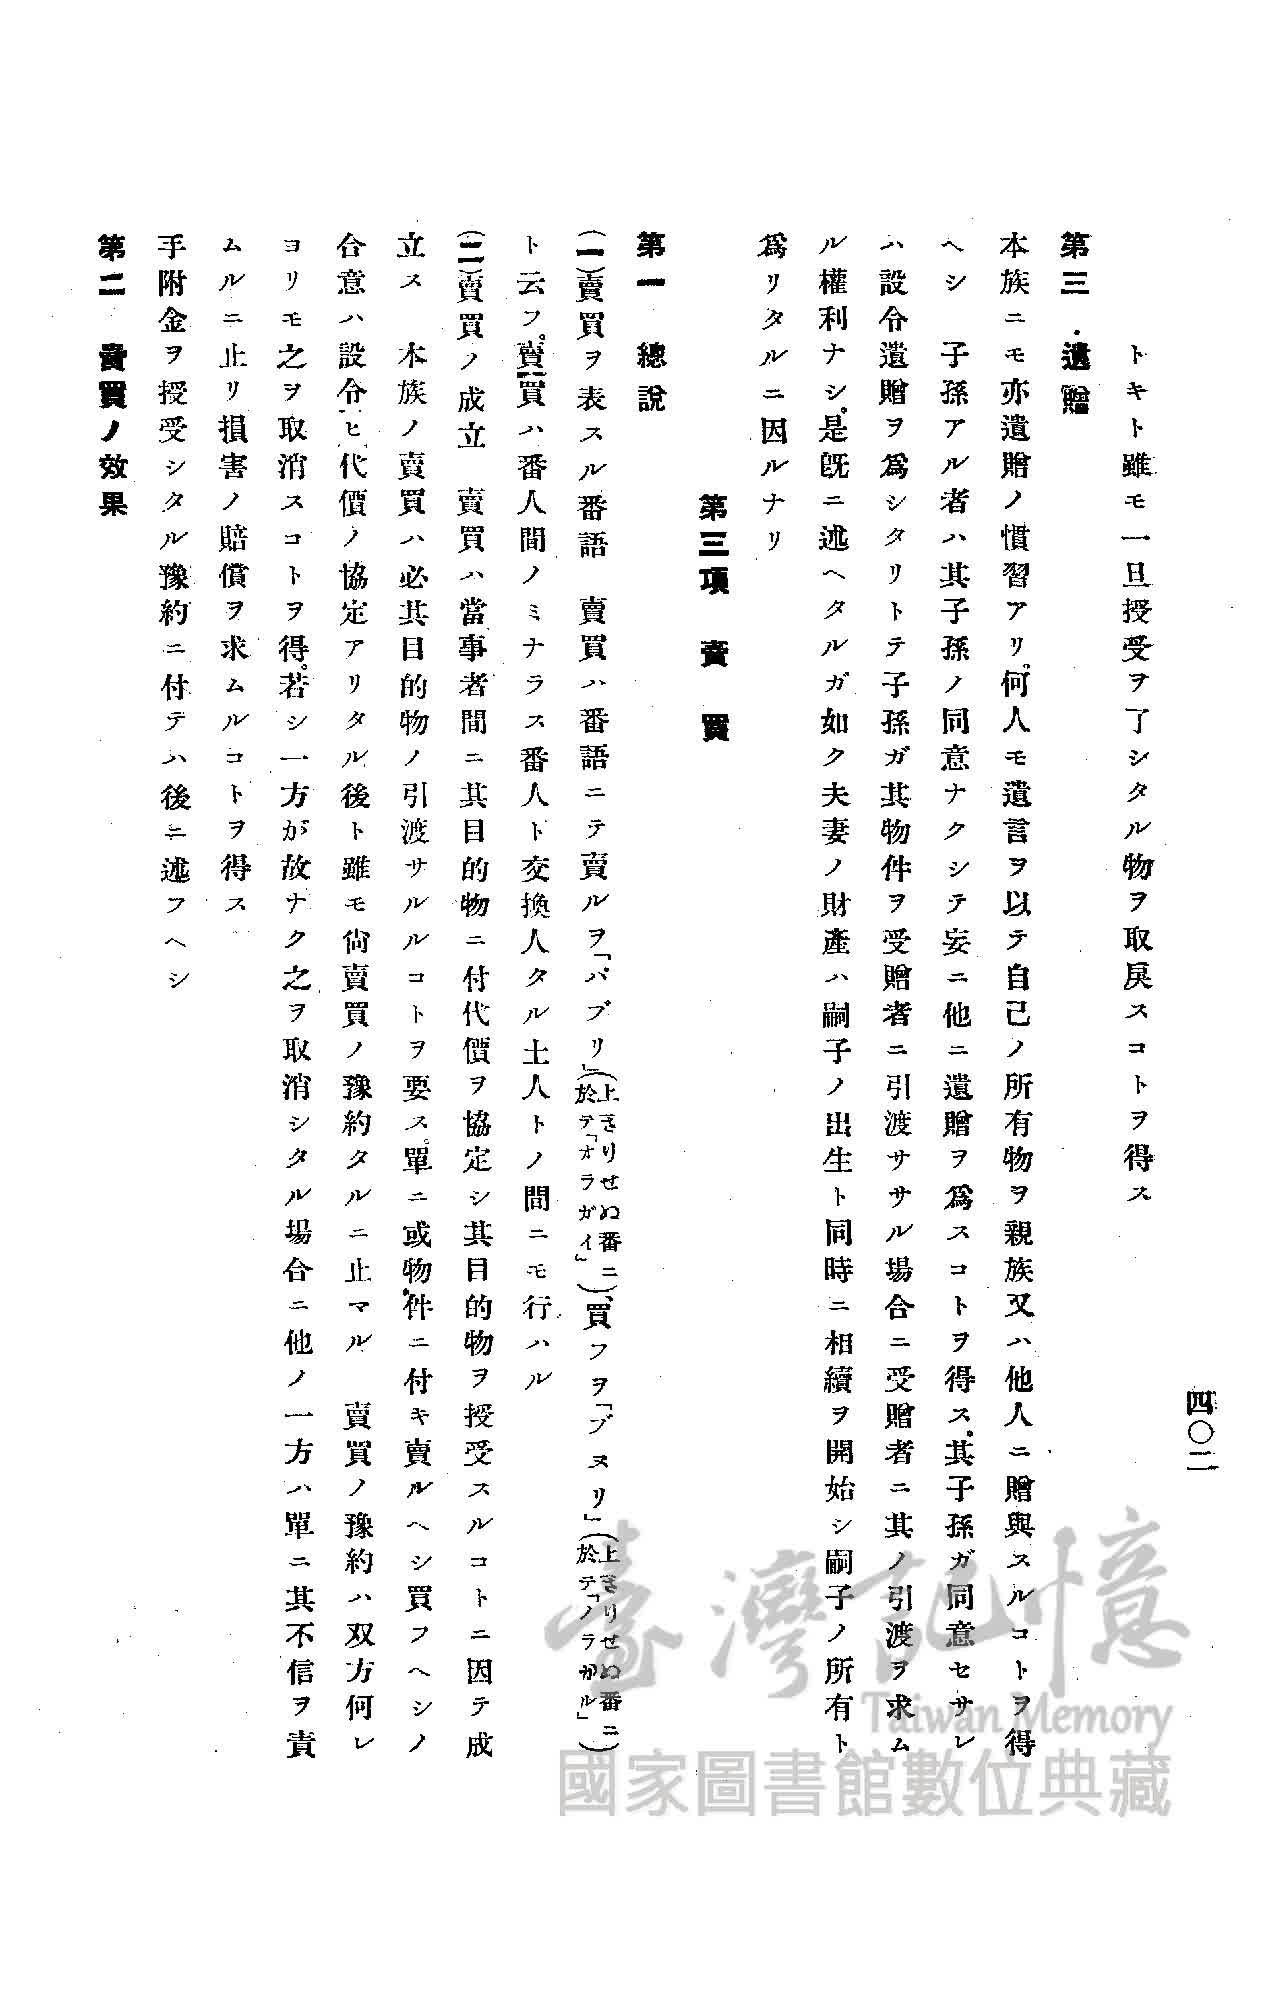 四〇二
トキト雖モ一旦授受ヲ了シタル物ヲ取戾スコトヲ得ス
第三 遺贈
本族ニモ亦遺贈ノ慣習アリ。何人モ遺言ヲ以テ自己ノ所有物ヲ親族又ハ他人ニ贈與スルコトヲ得
ヘシ 子孫アル者ハ其子孫ノ同意ナクシテ妄ニ他ニ遺贈ヲ爲スコトヲ得ス。其子孫ガ同意セサレ
ハ設令遺贈ヲ爲シタリトテ子孫ガ其物件ヲ受贈者ニ引渡ササル場合ニ受贈者ニ其ノ引渡ヲ求ム
ル權利ナシ。是旣ニ述ヘタルガ如ク夫妻ノ財產ハ嗣子ノ出生ト同時ニ相續ヲ開始シ嗣子ノ所有ト
爲リタルニ因ルナリ
第三項 賣買
第一 總說
(一)賣買ヲ表スル番語 賣買ハ番語ニテ賣ルヲ「パブリ」(上きりせぬ番ニ於テ「オラガイ」)、買フヲ「ブヌリ」(上きりせぬ番ニ於テ「ノラガル」)
ト云フ。賣買ハ番人間ノミナラス番人ト交換人タル土人トノ間ニモ行ハル
(二)賣買ノ成立 賣買ハ當事者間ニ其目的物ニ付代價ヲ協定シ其目的物ヲ授受スルコトニ因テ成
立ス 本族ノ賣買ハ必其目的物ノ引渡サルルコトヲ要ス。單ニ或物件ニ付キ賣ルヘシ買フヘシノ
合意ハ設令ヒ代價ノ協定アリタル後ト雖モ尙賣買ノ豫約タルニ止マル 賣買ノ豫約ハ双方何レ
ヨリモ之ヲ取消スコトヲ得。若シ一方が故ナク之ヲ取消シタル場合ニ他ノ一方ハ單ニ其不信ヲ責
ムルニ止リ損害ノ賠償ヲ求ムルコトヲ得ス
手附金ヲ授受シタル豫約ニ付テハ後ニ述フヘシ
第二 賣買ノ效果
臺灣記憶
Taiwan Memory
國家圖書館數位典藏